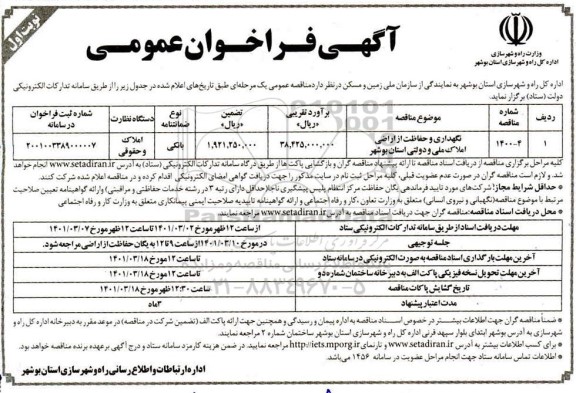 نوبت اول
آگهی فراخوان عمومی
وزارت راه و شهرسازی
اداره کل راه و شهرسازی استان بوشهر
اداره کل راه و شهرسازی استان بوشهر به نمایندگی از سازمان ملی زمین و مسکن در نظر دارد مناقصه عمومی یک مرحله‌ای طبق تاریخ‌های اعلام شده در جدول زیر را از طریق سامانه تدارکات الکترونیکی
دولت (ستاد) برگزار نماید.
ردیف شماره مناقصه موضوع مناقصه برآورد تقریبی «ریال» تضمین «ریال» نوع ضمانتنامه دستگاه نظارت شماره ثبت فراخوان در سامانه
۱ ۱۴۰۰-۴ نگهداری و حفاظت از اراضی املاک ملی و دولتی استان بوشهر ۳۸,۴۲۵,۰۰۰,۰۰۰ ۱,۹۲۱,۲۵۰,۰۰۰ بانکی املاک و حقوقی ۲۰۰۱۰۰۳۳۸۹۰۰۰۰۰۷
کلیه مراحل برگزاری مناقصه از دریافت اسناد مناقصه تا ارائه پیشنهاد مناقصه گران و بازگشایی پاکت ها از طریق درگاه سامانه تدارکات الکترونیکی (ستاد) به آدرس www.setadiran.ir انجام خواهد
شد. و لازم است مناقصه گران در صورت عدم عضویت قبلی، کلیه مراحل ثبت نام در سایت مذکور را جهت دریافت گواهی امضای الکترونیکی اقدام کرده و در مناقصه اعلام شده شرکت کنند.
* حداقل شرایط مجاز: شرکت‌های مورد تایید فرماندهی یگان حفاظت مرکز انتظام پلیس پیشگیری ناجا (حداقل دارای رتبه ۳ در رشته خدمات حفاظتی و مراقبتی) و ارائه گواهینامه تعیین صلاحیت
مرتبط با موضوع مناقصه (نگهبانی و نیروی انسانی) متعلق به وزارت تعاون ،کار و رفاه اجتماعی و ارائه گواهینامه تائیدیه صلاحیت ایمنی پیمانکاری متعلق به وزارت کار و رفاه اجتماعی
* محل دریافت اسناد مناقصه: مناقصه گران جهت دریافت اسناد مناقصه به آدرس www.setadiran.ir مراجعه نمایند.
مهلت دریافت اسناد از طریق سامانه تدارکات الکترونیکی ستاد از ساعت ۱۲ ظهر مورخ ۱۴۰۱/۰۳/۰۲ تا ساعت ۱۲ ظهر مورخ ۱۴۰۱/۰۳/۰۷
جلسه توجیهی در مورخ ۱۴۰۱/۰۳/۱۰ از ساعت ۹ تا ۱۲ به یگان حفاظت از اراضی مراجعه شود.
آخرین مهلت بارگذاری اسناد مناقصه به صورت الکترونیکی در سامانه ستاد تا ساعت ۱۲ مورخ ۱۴۰۱/۰۳/۱۸
آخرین مهلت تحویل نسخه فیزیکی پاکت الف به دبیرخانه ساختمان شماره دو تا ساعت ۱۲ مورخ ۱۴۰۱/۰۳/۱۸
تاریخ گشایش پاکات مناقصه ساعت ۱۲:۳۰ ظهر مورخ ۱۴۰۱/۰۳/۱۸
مدت اعتبار پیشنهاد ۳ ماه
* ضمناً مناقصه گران جهت اطلاعات بیشتر در خصوص اسناد مناقصه به اداره پیمان و رسیدگی و همچنین جهت ارائه پاکت الف (تضمین شرکت در مناقصه) در موعد مقرر به دبیرخانه اداره کل راه و
شهرسازی به آدرس بوشهر ابتدای بلوار سپهبد قرنی اداره کل راه و شهرسازی استان بوشهر ساختمان شماره ۲ مراجعه نمایند.
* برای کسب اطلاعات بیشتر به آدرس www.setadiran.ir و تارنمای http://iets.mporg.ir مراجعه نمایید. در ضمن هزینه کارمزد سامانه ستاد و درج آگهی برعهده برنده مناقصه خواهد بود.
* اطلاعات تماس سامانه ستاد جهت انجام مراحل عضویت در سامانه ۱۴۵۶ می باشد.
اداره ارتباطات و اطلاع رسانی راه و شهرسازی استان بوشهر
۰۲۱-۸۸۳۴۹۶۷۰-۵